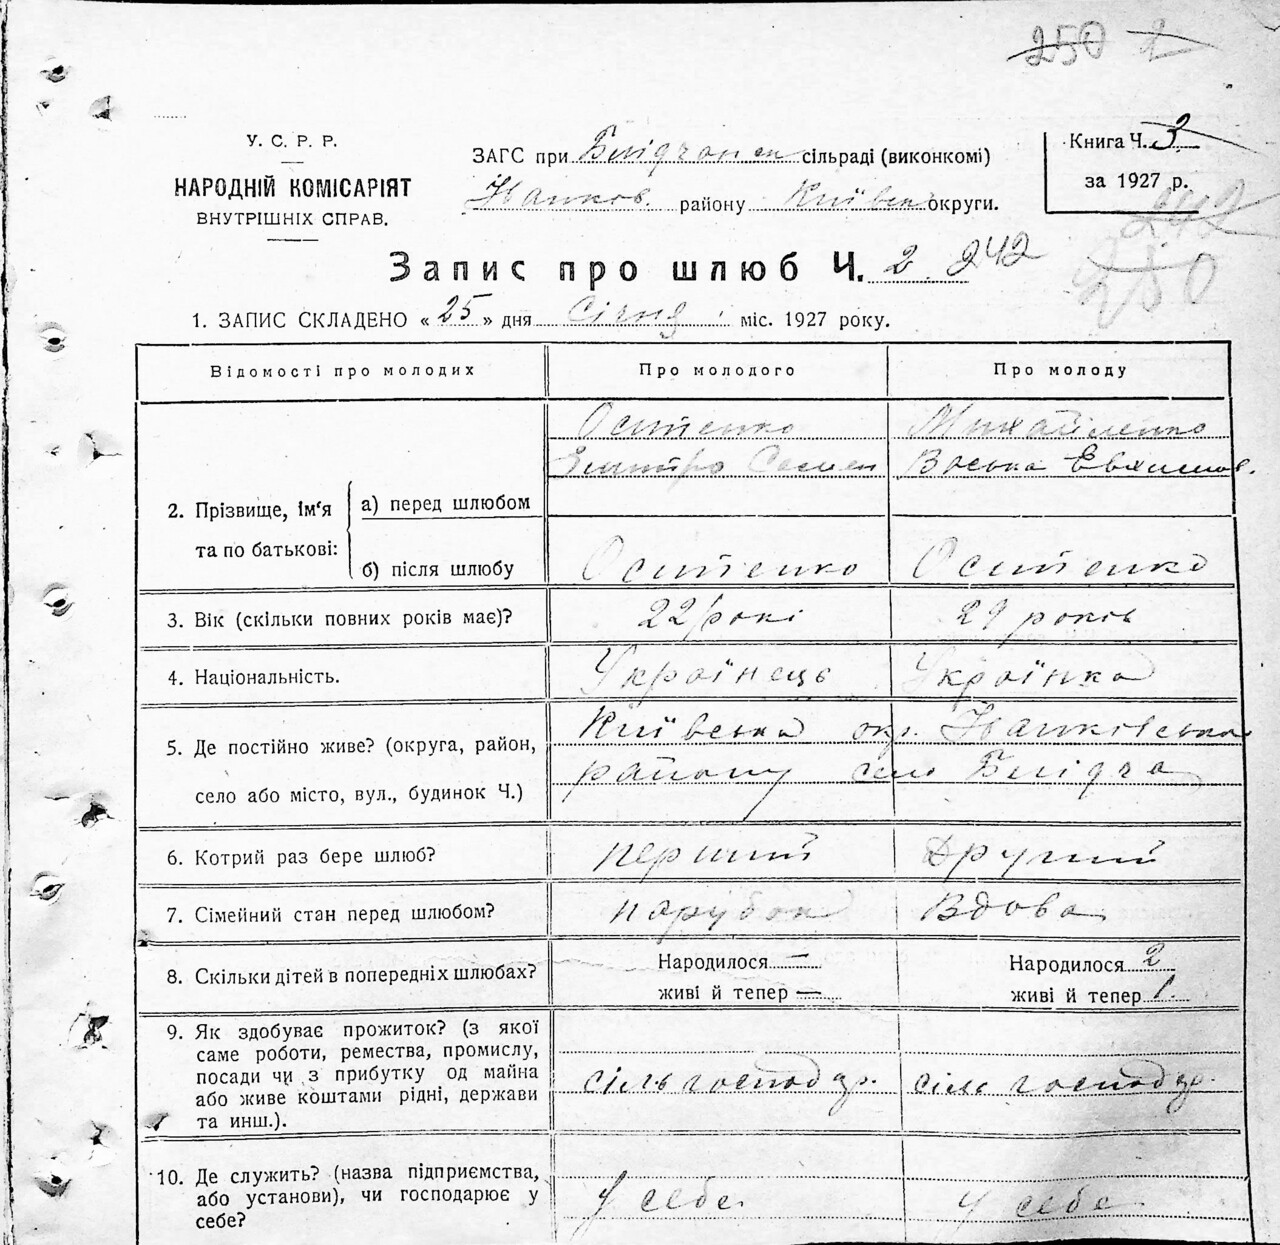 250 2
У. С. Р. Р.
НАРОДНІЙ КОМІСАРІЯТ
ВНУТРІШНІХ СПРАВ.
ЗАГС при сільраді (виконкомі)
району Київськ округи.
Книга Ч. 3
за 1927 р.
242
250
Запис про шлюб Ч. 2 242
1. ЗАПИС СКЛАДЕНО « 25 » дня Січня міс. 1927 року.
Відомості про молодих Про молодого Про молоду
2. Прізвище, ім‘я та по батькові:
а) перед шлюбом
Михайленко
Дмитро Семен
б) після шлюбу
3. Вік (скільки повних років має)? 22 рокі 29 років
4. Національність. Українець Українка
5. Де постійно живе? (округа, район,
село або місто, вул., будинок Ч.)
Київська окр.
району село
6. Котрий раз бере шлюб? перший Другий
7. Сімейний стан перед шлюбом? парубок Вдова
8. Скільки дітей в попередніх шлюбах? Народилося — Народилося 2
живі й тепер — живі й тепер 1.
9. Як здобуває прожиток? (з якої
саме роботи, ремества, промислу,
посади чи з прибутку од майна
або живе коштами рідні, держави
та инш.).
сіль господар. сіль господар.
10. Де служить? (назва підприємства,
або установи), чи господарює у
себе?
у себе у себе